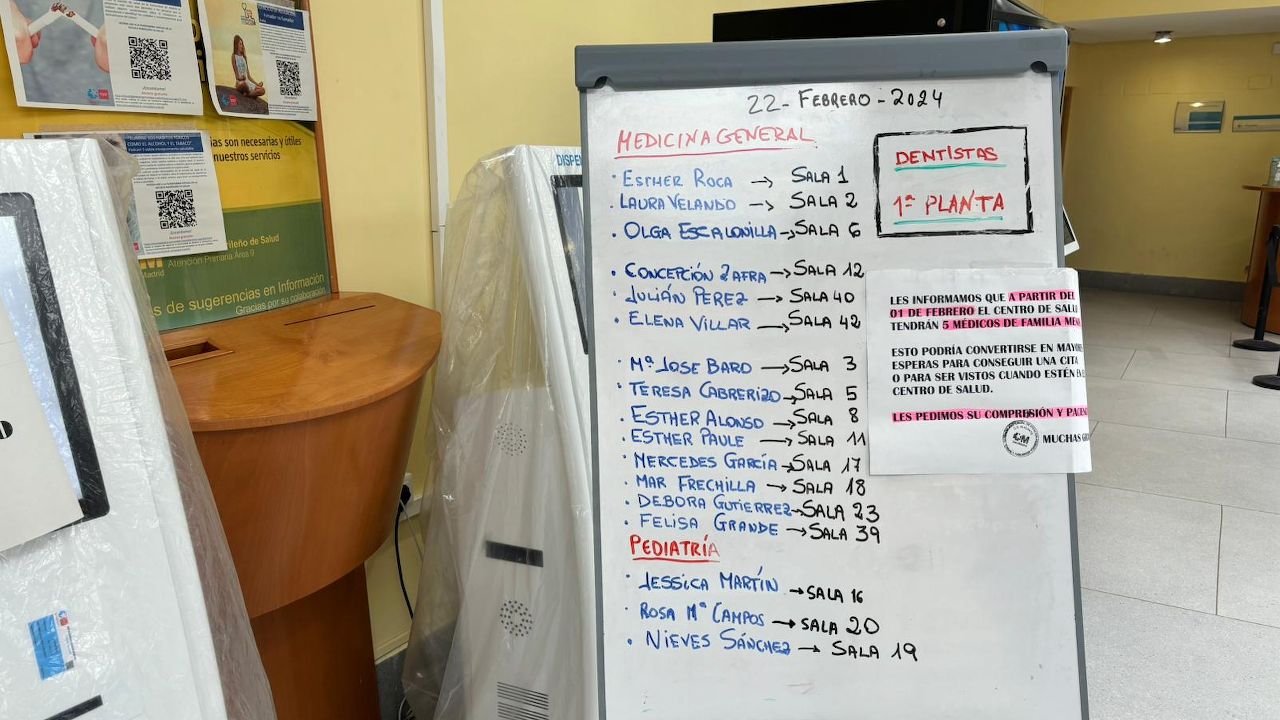 22 - FEBRERO - 2024
MEDICINA GENERAL
· ESTHER ROCA → SALA 1
· LAURA VELANDO → SALA 2
· OLGA ESCALONILLA → SALA 6
· CONCEPCIÓN ZAFRA → SALA 12
· JULIÁN PEREZ → SALA 40
· ELENA VILLAR → SALA 42
· Mª JOSE BARO → SALA 3
· TERESA CABRERIZO → SALA 5
· ESTHER ALONSO → SALA 8
· ESTHER PAULE → SALA 11
· MERCEDES GARCÍA → SALA 17
· MAR FRECHILLA → SALA 18
· DEBORA GUTIERREZ → SALA 23
· FELISA GRANDE → SALA 39
PEDIATRÍA
· JESSICA MARTÍN → SALA 16
· ROSA Mª CAMPOS → SALA 20
· NIEVES SÁNCHEZ → SALA 19
DENTISTAS
1ª PLANTA
LES INFORMAMOS QUE A PARTIR DEL
01 DE FEBRERO EL CENTRO DE SALU
TENDRÁN 5 MÉDICOS DE FAMILIA MEN
ESTO PODRÍA CONVERTIRSE EN MAYORE
ESPERAS PARA CONSEGUIR UNA CITA
O PARA SER VISTOS CUANDO ESTÉN EN E
CENTRO DE SALUD.
LES PEDIMOS SU COMPRESIÓN Y PACIEN
MUCHAS GR
as son necesarias y útiles
nuestros servicios
rileño de Salud
Atención Primaria Area 9
Madrid
s de sugerencias en Información
Gracias por su colaboración
COMO EL ALCOHOL Y EL TABACO"
DISPE